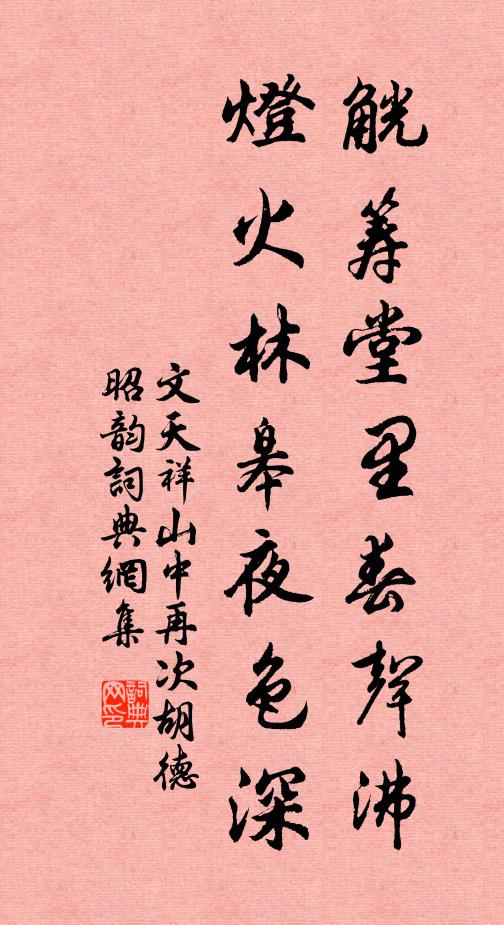 觥筹堂里春聲沸
燈火林皋夜色深
文天祥山中再次胡德
昭韵詞典網集
詞典网印